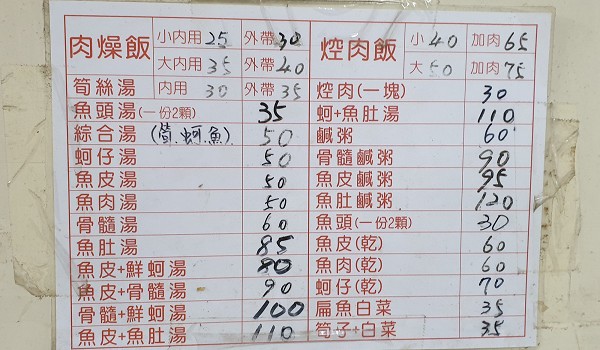 肉燥飯 小內用 25 外帶 30
大內用 35 外帶 40
筍絲湯 內用 30 外帶 35
魚頭湯(一份2顆) 35
綜合湯 (筍.蚵.魚) 50
蚵仔湯 50
魚皮湯 50
魚肉湯 50
骨髓湯 60
魚肚湯 85
魚皮+鮮蚵湯 80
魚皮+骨髓湯 90
骨髓+鮮蚵湯 100
魚皮+魚肚湯 110
焢肉飯 小 40 加肉 65
大 50 加肉 75
焢肉(一塊) 30
蚵+魚肚湯 110
鹹粥 60
骨髓鹹粥 90
魚皮鹹粥 95
魚肚鹹粥 120
魚頭(一份2顆) 30
魚皮(乾) 60
魚肉(乾) 60
蚵仔(乾) 70
扁魚白菜 35
筍子+白菜 35